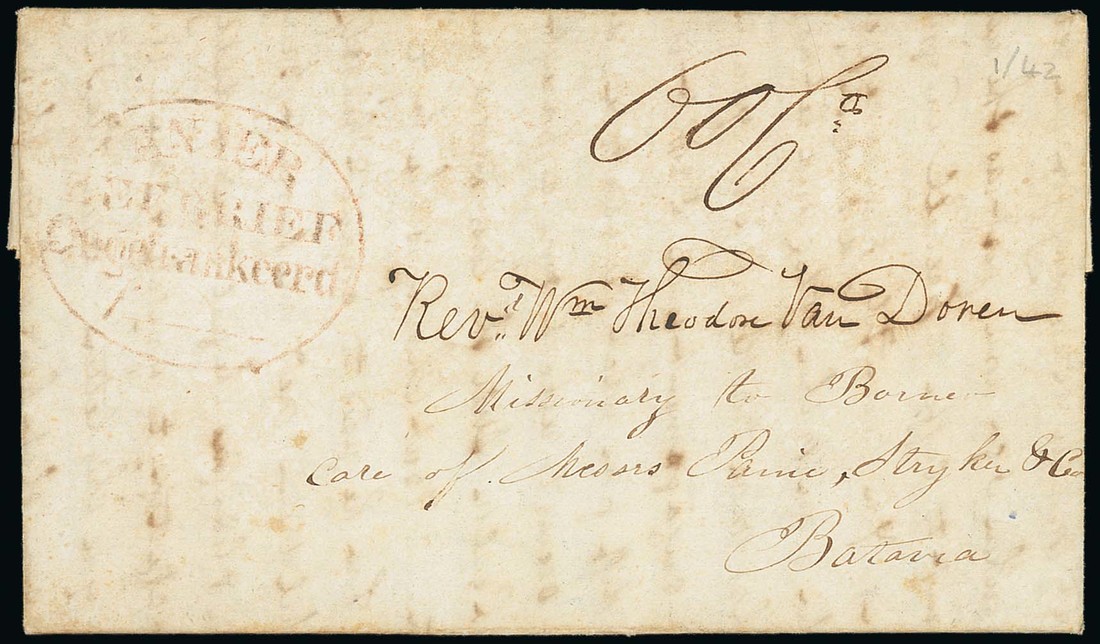 60 Cts
1/42
ANJER
ZEE BRIEF
Ongefrankeerd
Revd. Wm Theodore Van Doren
Missionary to Borneo
care of Messrs Paine, Stryker & Co
Batavia